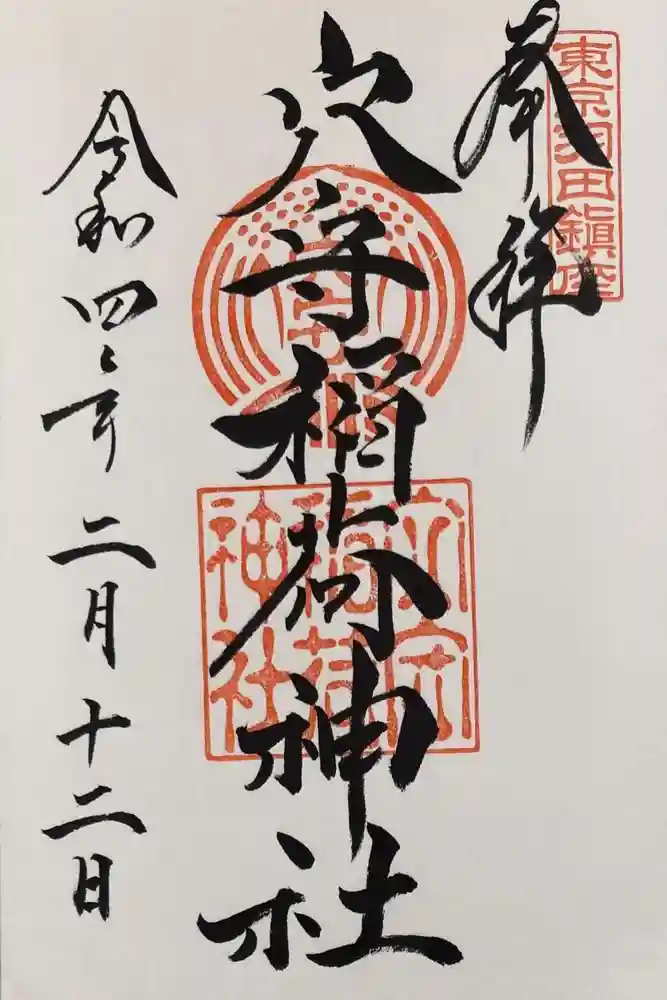 東京羽田鎮座
奉拝
穴守稲荷神社
穴守
稲荷
神社
令和四年二月十二日